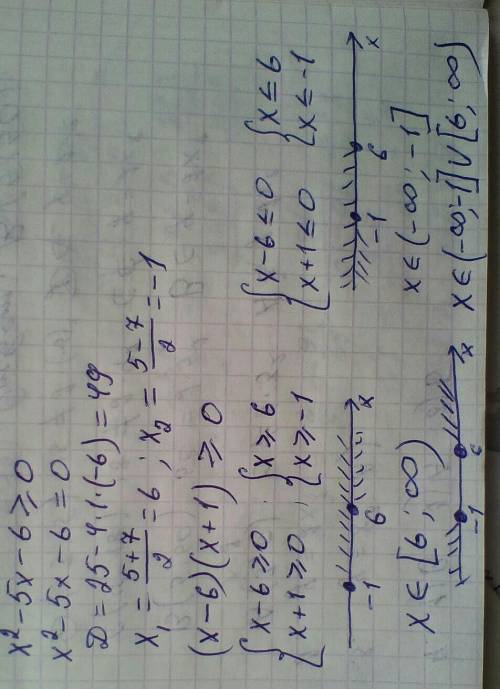 x²-5x-6≥0
x²-5x-6=0
D=25-4·1·(-6)=49
x₁=(5+7)/2=6; x₂=(5-7)/2=-1
(x-6)(x+1)≥0
{x-6≥0 ; {x≥6 {x-6≤0 {x≤6
{x+1≥0 {x≥-1 {x+1≤0 {x≤-1
-1 6 x -1 6 x
x∈[6;∞) x∈(-∞;-1]
-1 6 x x∈(-∞;-1]∪[6;∞)